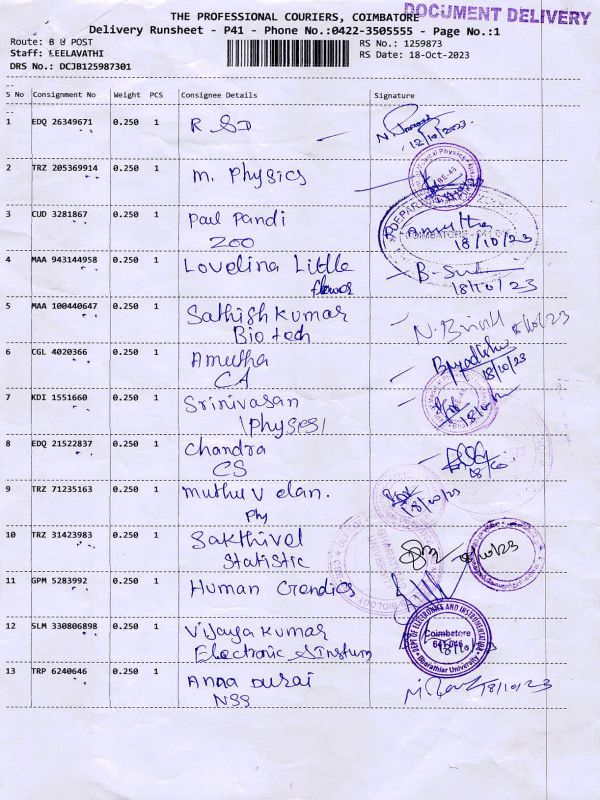 THE PROFESSIONAL COURIERS, COIMBATORE
DOCUMENT DELIVERY
Delivery Runsheet - P41 - Phone No.:0422-3505555 - Page No.:1
Route: B U POST
RS No.: 1259873
Staff: LEELAVATHI
RS Date: 18-Oct-2023
DRS No.: DCJB125987301
S No Consignment No Weight PCS Consignee Details Signature
1 EDQ 26349671 0.250 1 R SD
12/10/2023
2 TRZ 205369914 0.250 1 M. Physics
3 CUD 3281867 0.250 1 Paul Pandi Amutha
ZOO 18/10/23
4 MAA 943144958 0.250 1 Lovelina Little
flower 18/10/23
5 MAA 100440647 0.250 1 Sathish kumar
Bio tech
6 CGL 4020366 0.250 1 Amutha
CA 18/10/23
7 KDI 1551660 0.250 1 Srinivasan
Physics
8 EDQ 21522837 0.250 1 Chandra
CS
9 TRZ 71235163 0.250 1 Muthu v elan.
Phy 18/10/23
10 TRZ 31423983 0.250 1 Sakthivel
Statistic
11 GPM 5283992 0.250 1 Human Gendics
12 SLM 330806898 0.250 1 Vijaya kumar
Electronic & Instrum
DEPT OF ELECTRONICS AND INSTRUMENTATION
Coimbatore
641 046
Bharathiar University
13 TRP 6240646 0.250 1 Anna Durai
NSS 18/10/23